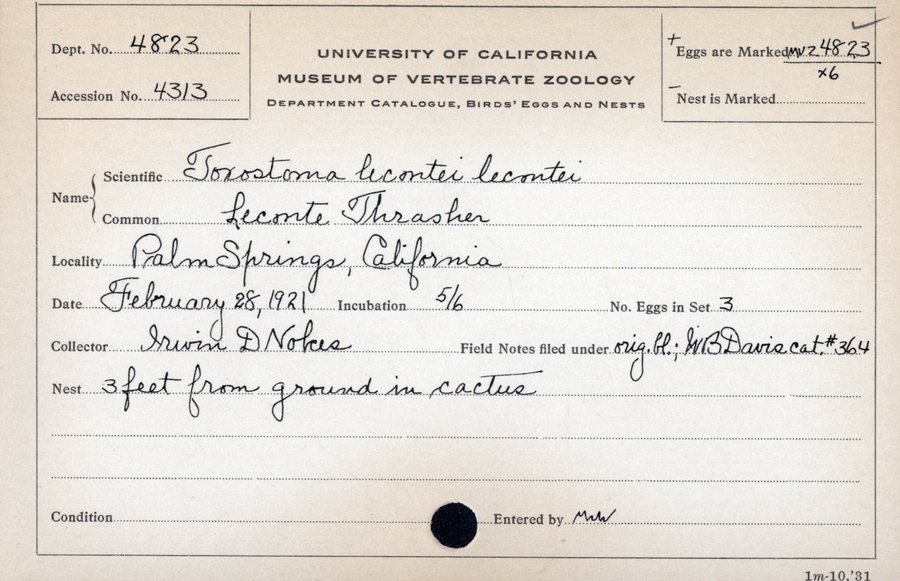 Dept. No. 4823
Accession No. 4313
UNIVERSITY OF CALIFORNIA
MUSEUM OF VERTEBRATE ZOOLOGY
DEPARTMENT CATALOGUE, BIRDS' EGGS AND NESTS
+ Eggs are Marked MVZ 4823
x6
- Nest is Marked
Name { Scientific Toxostoma lecontei lecontei
Common Leconte Thrasher
Locality Palm Springs, California
Date February 28, 1921 Incubation 5/6 No. Eggs in Set 3
Collector Irwin D Nokes Field Notes filed under orig. bl.; WB Davis cat. #364
Nest 3 feet from ground in cactus
Condition Entered by
1m-10,'31